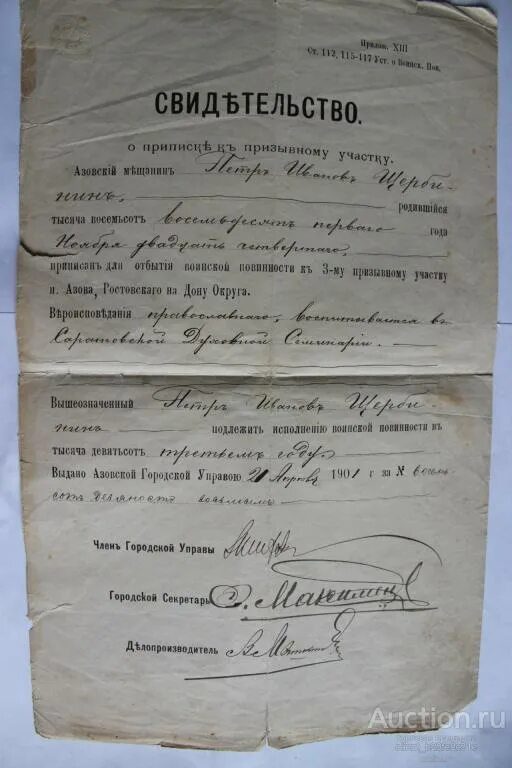 Прилож. XIII
Ст. 112, 115-117 Уст. о Воинск. Пов.
СВИДѢТЕЛЬСТВО.
о припискѣ къ призывному участку.
Азовскій мѣщанинъ Петръ Ивановъ Щерби-
нинъ, родившійся
тысяча восемьсот восемьдесятъ перваго года
Ноября двадцать четвертаго,
приписан для отбытія воинской повинности къ 3-му призывному участку
п. Азова, Ростовскаго на Дону Округа.
Вѣроисповѣданія православнаго, воспитывается въ
Саратовской Духовной Семинаріи. —
Вышеозначенный Петръ Ивановъ Щерби-
нинъ подлежитъ исполненію воинской повинности въ
тысяча девятьсотъ третьемъ году.
Выдано Азовской Городской Управою 21 Апрѣля 1901 г за № восемь
сотъ девяносто восьмымъ
Членъ Городской Управы
Городской Секретарь С. Максимов
Дѣлопроизводитель В.
Auction.ru